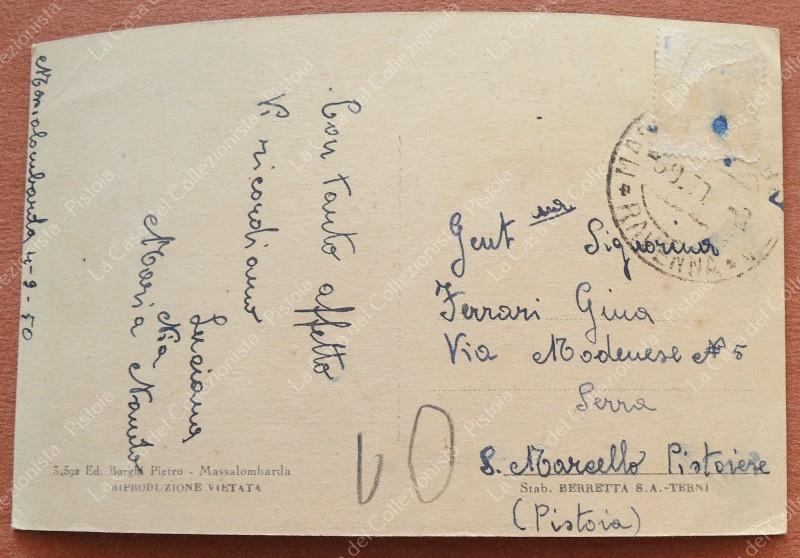 Massalombarda 4-9-50
Con tanto affetto
Vi ricordiamo
Luciana
Maria
Gent ma Signorina
Ferrari Gina
Via Modenese N 5
Serra
S. Marcello Pistoiese
(Pistoia)
RAVENNA
34592 Ed. Borghi Pietro - Massalombarda
RIPRODUZIONE VIETATA
Stab. BERRETTA S.A.-TERNI
La Casa del Collezionista - Pistoia